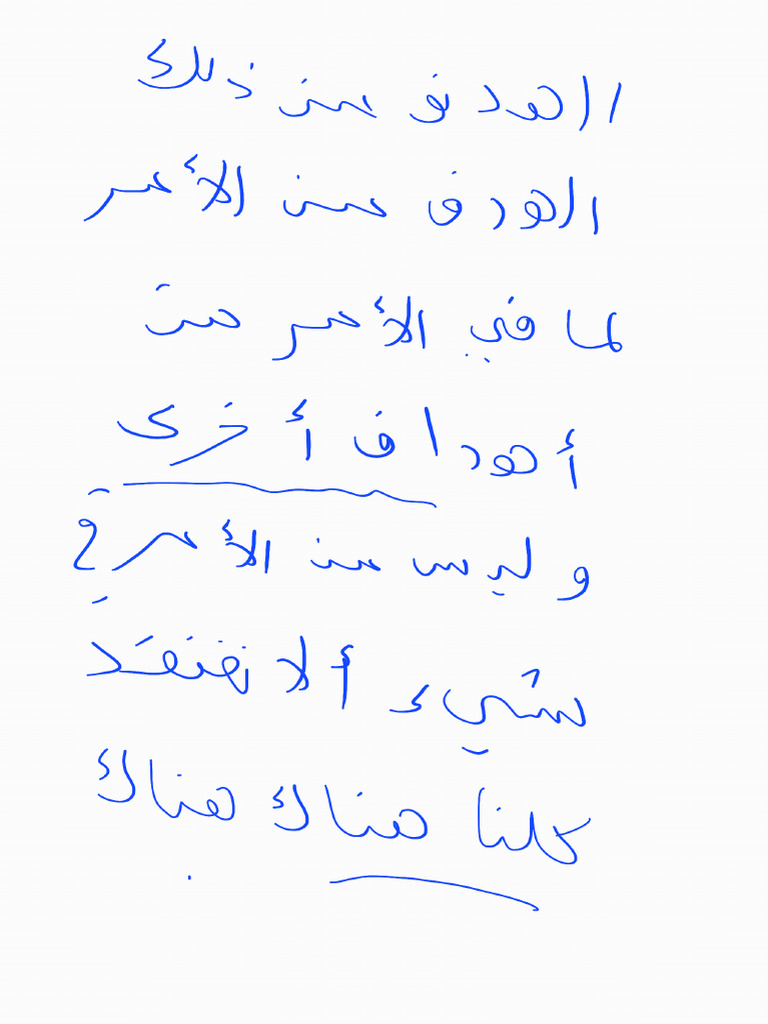 الهدف من ذلك
الهدف من الأمر
لما في الأمر من
أهداف أخرى
وليس من الأمر في
شيء ألا نفتقد
كلنا هناك هناك